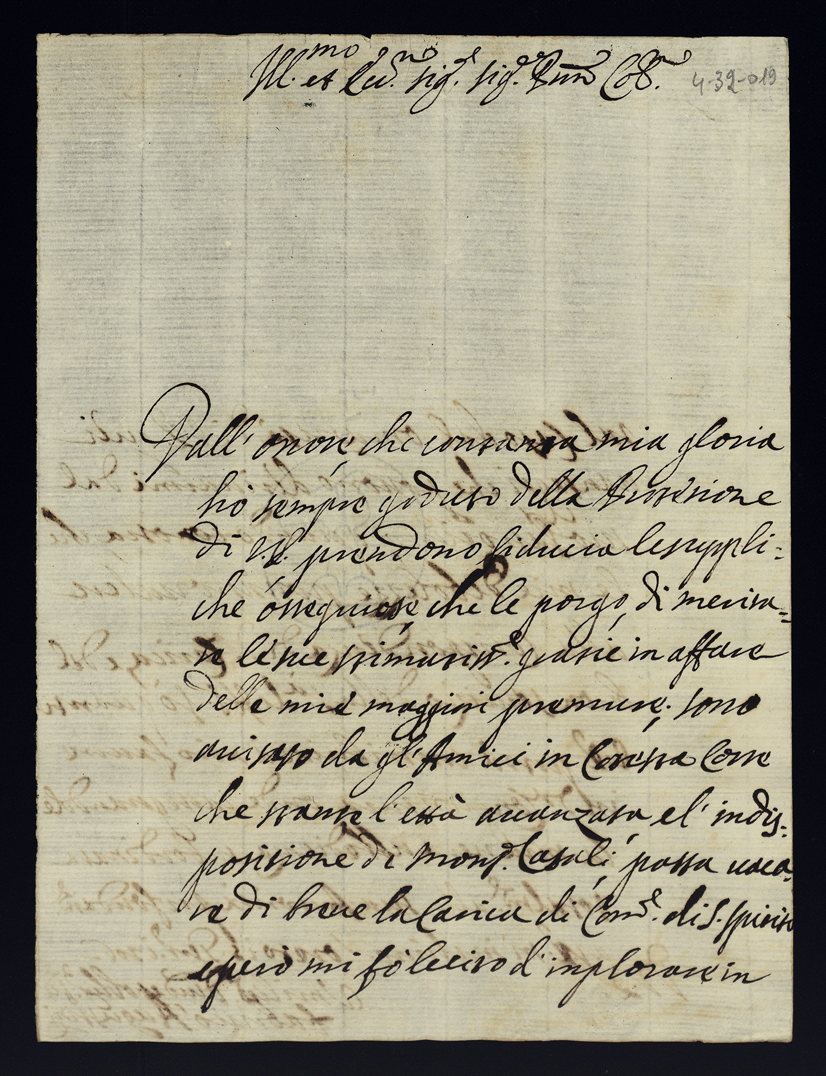 Ill.mo et Ecc.mo Sig.r Sig.r P.ron Col.mo
4-32-019
Dall' onore che con tanta mia gloria
hò sempre goduto della Protetione
di V.E. prendono fiducia le suppli-
che osseguiose, che le porgo, di merita-
re le sue stimatiss.e gratie in affare
delle mie maggiori premure; sono
avisato da gl'Amici in Cotesta Corte
che stante l'età avanzata e l'indis-
positione di Mons.r Casali, possa vaca-
re di breve la Carica di Com.re di S. Spirito
e però mi fò lecito d'implorare in